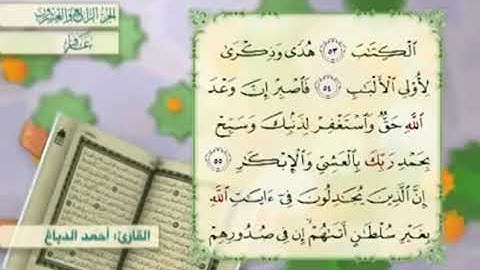 الجزء الرابع والعشرون
غافر
ٱلْكِتَٰبَ ٥٣ هُدًى وَذِكْرَىٰ
لِأُو۟لِى ٱلْأَلْبَٰبِ ٥٤ فَٱصْبِرْ إِنَّ وَعْدَ
ٱللَّهِ حَقٌّ وَٱسْتَغْفِرْ لِذَنۢبِكَ وَسَبِّحْ
بِحَمْدِ رَبِّكَ بِٱلْعَشِىِّ وَٱلْإِبْكَٰرِ ٥٥
إِنَّ ٱلَّذِينَ يُجَٰدِلُونَ فِىٓ ءَايَٰتِ ٱللَّهِ
بِغَيْرِ سُلْطَٰنٍ أَتَىٰهُمْ ۙ إِن فِى صُدُورِهِمْ
القارئ: أحمد الدباغ